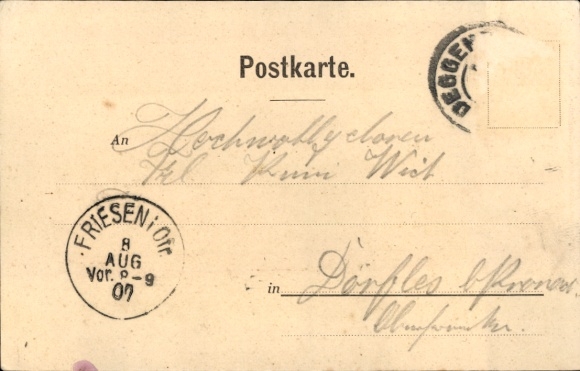 DEGGEN
Postkarte.
An Hochwohlgeboren
Frl
FRIESEN i. Ofr.
8
AUG
Vor. 8-9
07
in Dörfles b Kronach
Oberfranken.